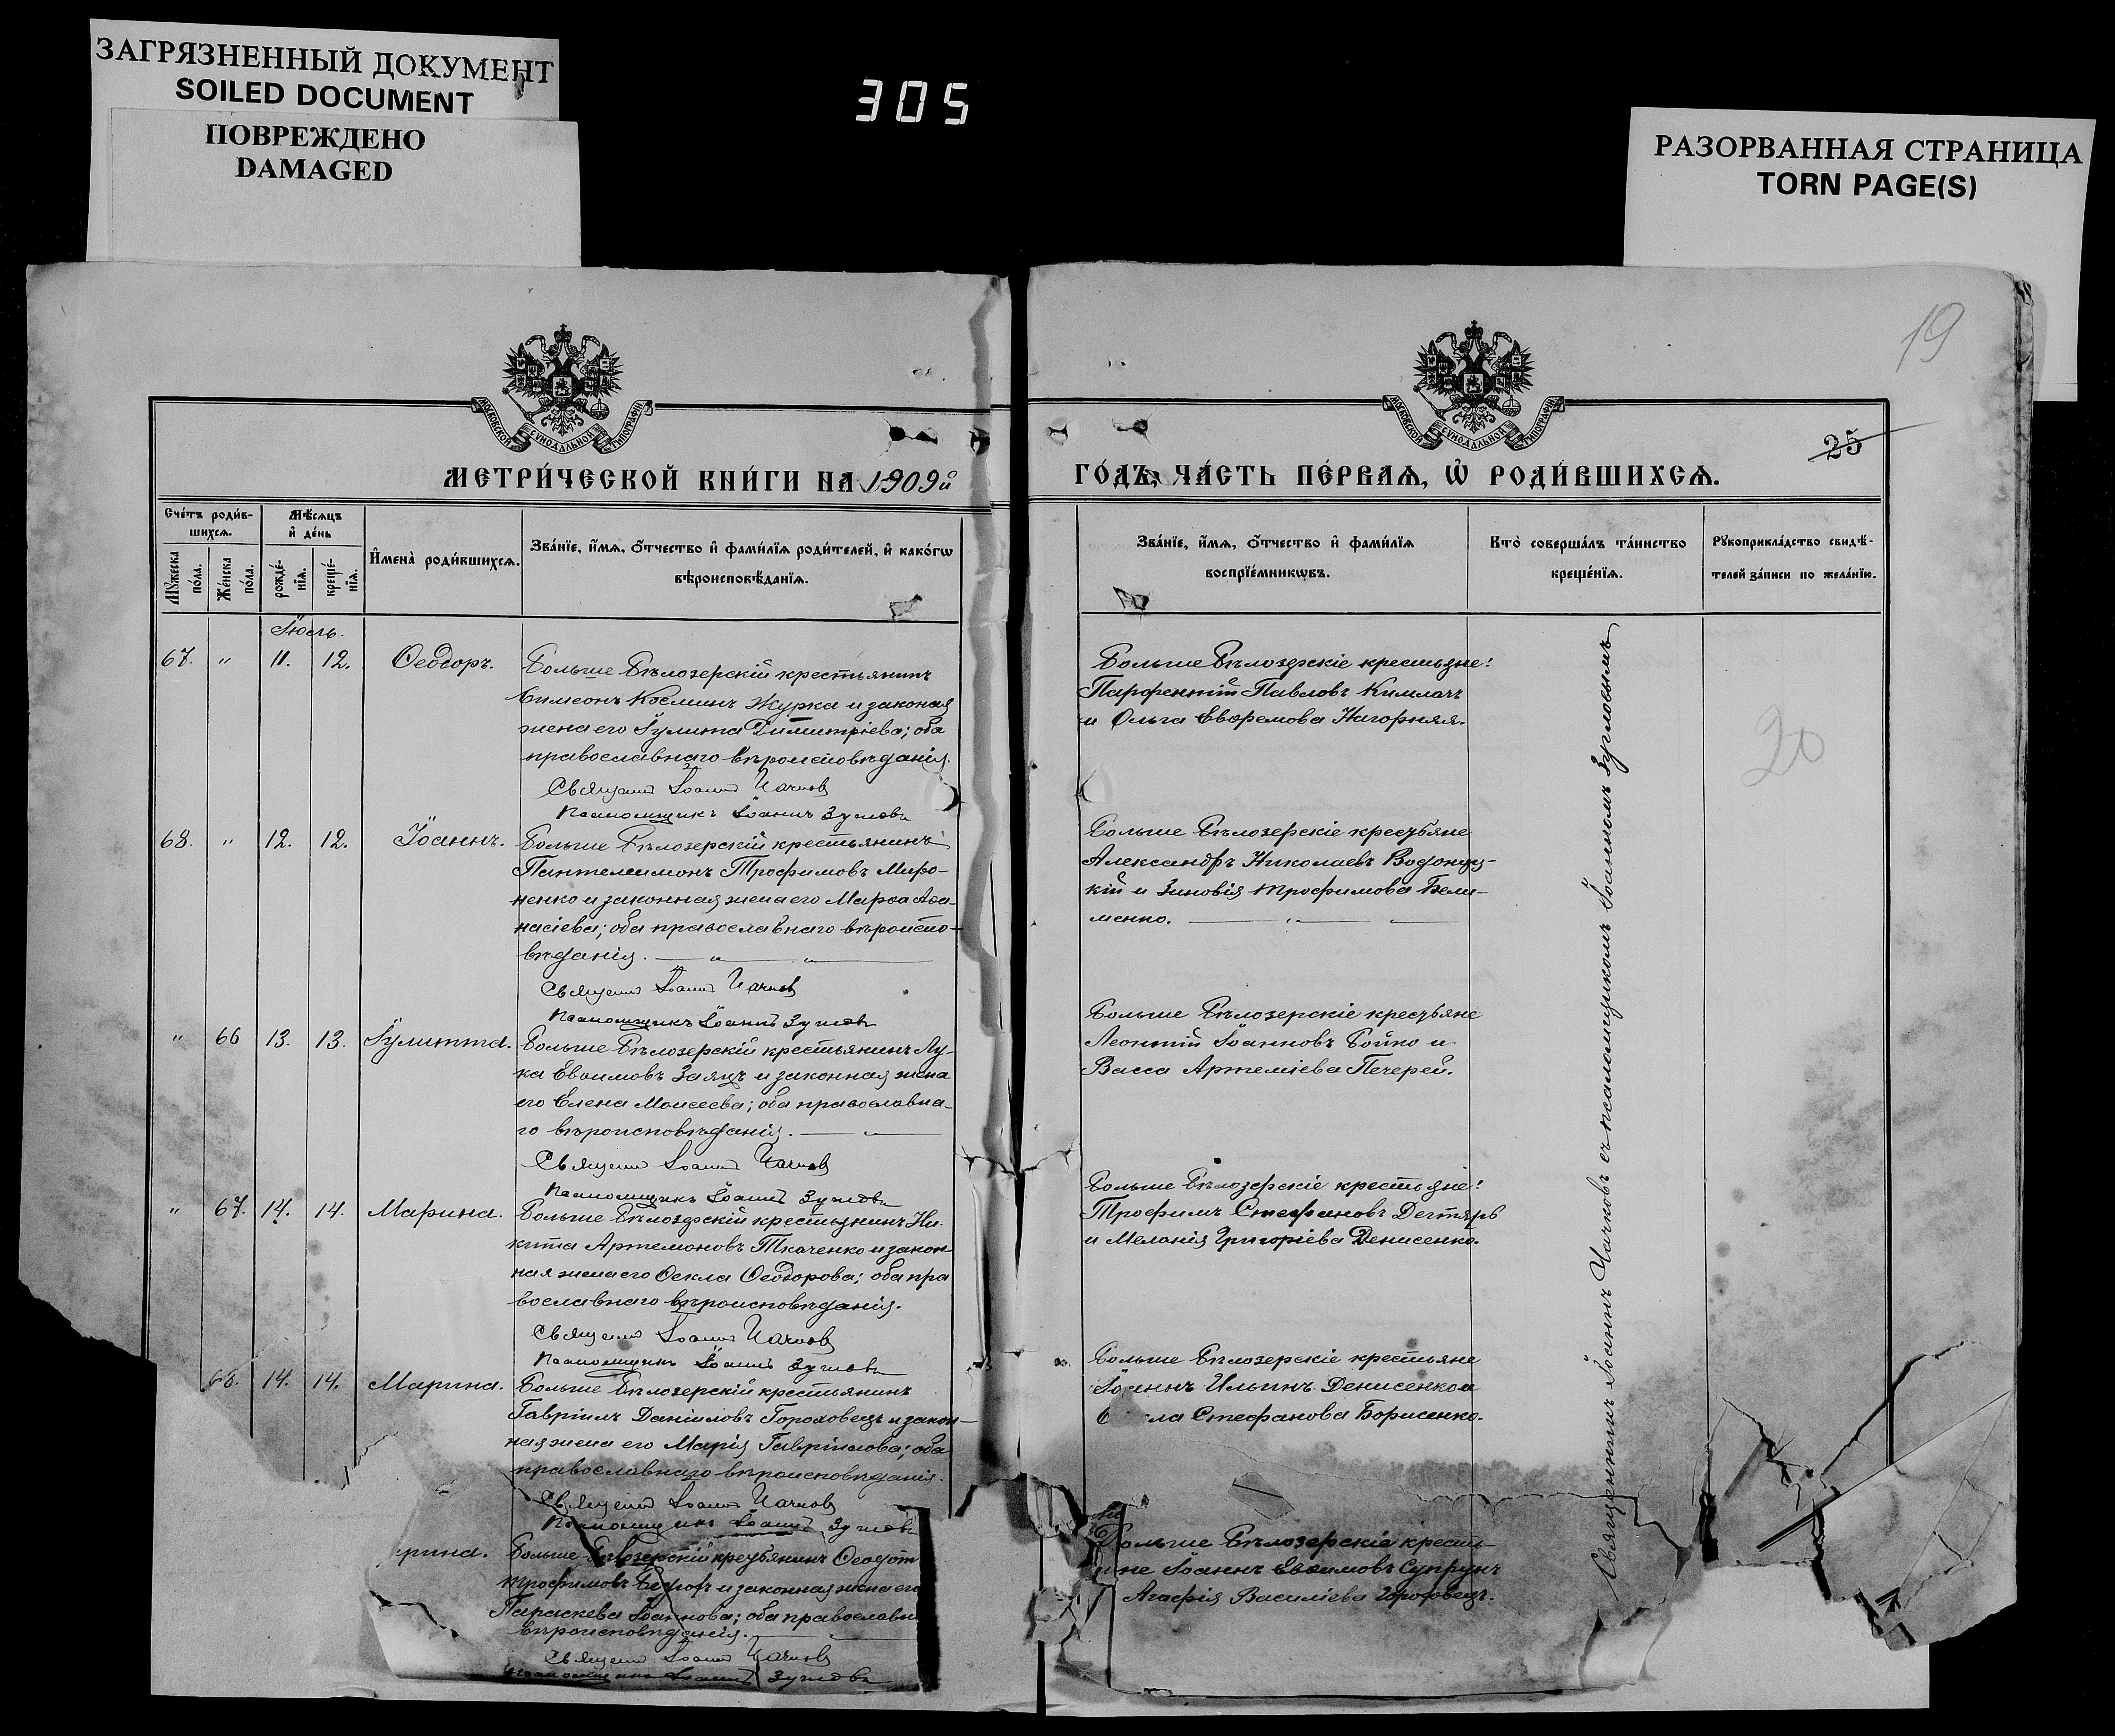 ЗАГРЯЗНЕННЫЙ ДОКУМЕНТ
SOILED DOCUMENT
ПОВРЕЖДЕНО
DAMAGED
305
РАЗОРВАННАЯ СТРАНИЦА
TORN PAGE(S)
19
МОСКОВСКОЙ СѴНОДАЛЬНОЙ ТИПОГРАФІИ
МОСКОВСКОЙ СѴНОДАЛЬНОЙ ТИПОГРАФІИ
25
МЕТРИ́ЧЕСКОЙ КНИ́ГИ НА 1909й
ГО́ДЪ, ЧА́СТЬ ПЕ́РВАѦ, Ѡ҆ РОДИ́ВШИХСѦ.
Сче́тъ роди́в-
шихсѧ.
Мꙋ́жеска по́ла.
Же́нска по́ла.
Мѣ́сѧцъ
и҆ де́нь
рожде́-
нїѧ.
креще́-
нїѧ.
И҆мена̀ роди́вшихсѧ.
Зва́нїе, и҆́мѧ, ѻ҆́тчество и҆ фами́лїѧ роди́телей, и҆ како́гѡ
вѣроисповѣ́данїѧ.
Зва́нїе, и҆́мѧ, ѻ҆́тчество и҆ фами́лїѧ
воспрїе́мникѡвъ.
Кто̀ соверша́лъ та́инство
креще́нїѧ.
Рꙋкоприкла́дство свидѣ́-
телей за́писи по жела́нїю.
Іюль.
67. " 11. 12. Ѳеодоръ.
Больше Бѣлозерскій крестьянинъ
Симеонъ Косминъ Журка и законая
жена его Іулита Димитріева; оба
православнаго вѣроисповѣданія.
Священ Іоанн Чачков
Псаломщикъ Іоаннъ Зуглов
Больше Бѣлозерскіе крестьяне:
Парфентій Павловъ Килпачъ
и Ольга Евфремова Нагорняя.
20
68. " 12. 12. Іоаннъ.
Больше Бѣлозерскій крестьянинъ
Пантелеимонъ Трофимовъ Миро-
ненко и законная жена его Марѳа Аѳа-
насіева; оба православнаго вѣроиспо-
вѣданія. — " — "
Священ Іоанн Чачков
Псаломщикъ Іоаннъ Зуглов
Больше Бѣлозерскіе крестьяне
Александръ Николаевъ
кій и Зиновія Трофимова Вели-
менко. — " —
" 66 13. 13. Іулитта.
Больше Бѣлозерскій крестьянинъ Лу-
ка Евѳимовъ Заяцъ и законная жена
его Елена Моисеева; оба православна-
го вѣроисповѣданія. — " —
Священ Іоанн Чачков
Псаломщикъ Іоаннъ Зуглов
Больше Бѣлозерскіе крестьяне
Леонтій Іоанновъ Бойко и
Васса Артеміева Печерей.
" 67. 14. 14. Марина.
Больше Бѣлозерскій крестьянинъ Ни-
кита Артемоновъ Ткаченко и закон
ная жена его Ѳекла Ѳеодорова; оба пра
вославнаго вѣроисповѣданія.
Священ Іоанн Чачков
Псаломщикъ Іоаннъ Зуглов
Больше Бѣлозерскіе крестьяне:
Трофимъ Стефановъ Дегтярь
и Меланія Григоріева Денисенко.
68. 14. 14. Марина.
Больше Бѣлозерскій крестьянинъ
Гавріилъ Даніиловъ Гороховецъ и закон-
ная жена его Марія Гавріилова; оба
православнаго вѣроисповѣданія.
Священ Іоанн Чачков
Псаломщикъ Іоаннъ Зуглов
Больше Бѣлозерскіе крестьяне
Іоаннъ Ильинъ Денисенко и
кла Стефанова Борисенко.
рина.
Больше Бѣлозерскій крестьянинъ Ѳеодот
Трофимовъ и законная жена его
Параскева Іоаннова; оба православн
вѣроисповѣданія. —
Священ Іоанн Чачков
Псаломщикъ Іоаннъ Зуглов
Больше Бѣлозерскіе кресть-
яне Іоаннъ Евѳимовъ Супрунъ
Агафія Василіева
Священникъ Іоаннъ Чачковъ съ псаломщикомъ Іоанномъ Зугловымъ